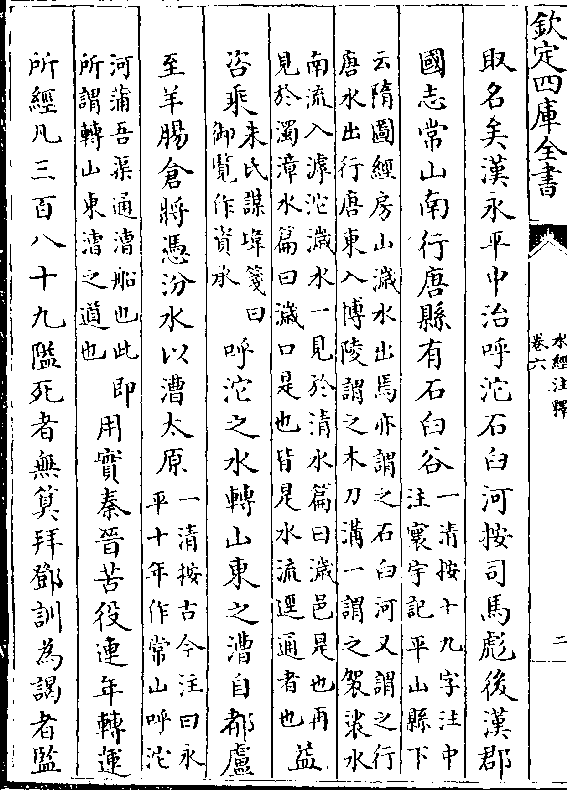 欽定四庫全書
水經注釋
卷六
二
取名矣漢永平中治呼沱石臼河按司馬彪後漢郡
國志常山南行唐縣有石臼谷
一清按十九字注中
注寰宇記平山縣下
云隋圖經房山濊水出焉亦謂之石臼河又謂之行
唐水出行唐東入博陵謂之木刀溝一謂之袈裟水
南流入滹沱濊水一見於清水篇曰濊邑是也再
見於濁漳水篇曰濊口是也皆是水流逕通者也
益
咨乘
朱氏謀㙔箋曰
御覽作資承
呼沱之水轉山東之漕自都盧
至羊腸倉將憑汾水以漕太原
一清按古今注曰永
平十年作常山呼沱
河蒲吾渠通漕船也此
所謂轉山東漕之道也
即用實秦晉苦役連年轉運
所經凡三百八十九隘死者無算拜鄧訓為謁者監